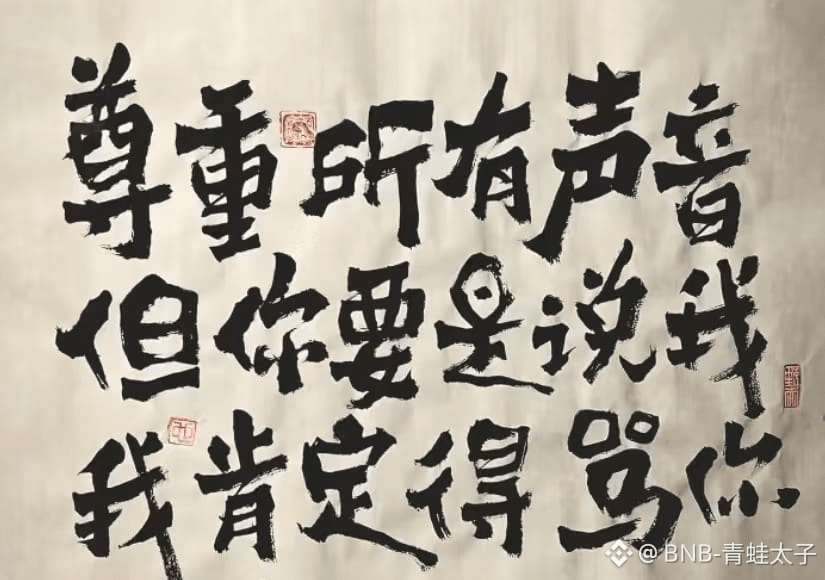 尊重所有声音
但你要是说我
我肯定得骂你
@BNB-青蛙太子